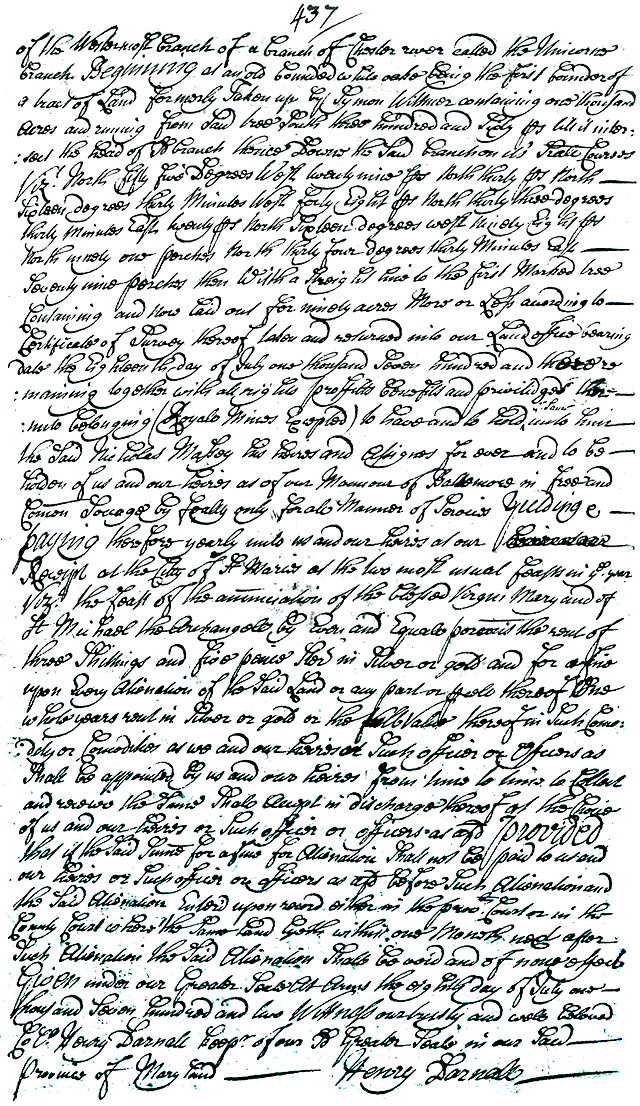 437
of the Westernmost branch of a branch of Chester river called the Unicorne
branch Beginning at an old bounded white oake being the first bounder of
a tract of Land formerly Taken up by Symon Willmer containing one thousand
acres and runing from said tree South three hundred and Sixty ps till it inter:
:sect the head of sd branch thence Downe the Said branch on its Severall Courses
Vizt. North fifty five Degrees West twenty nine ps North thirty ps North
Sixteen degrees thirty Minutes West forty Eight ps North thirty three degrees
thirty Minutes East twenty ps North Sixteen degrees west Ninety Eight ps
North ninety one perches North thirty four degrees thirty Minutes East
Seventy nine perches then With a Streight line to the first Marked tree
Containing and now laid out for ninety acres More or Less according to
Certificate of Survey thereof taken and returned into our Land office bearing
date the Eighteenth day of July one thousand Seven hundred and there re
:maining together with all rights proffitts benefits and priviledges there=
:unto belonging (Royale Mines Excepted) to have and to hold same unto him
the Said Nicholas Massey his heires and Assignes for ever and to be
holden of us and our heires as of our Mannour of Baltemore in free and
Comon Soccage by fealty only for all Manner of Service yielding &
paying therefore yearly unto us and our heires at our
Receipt at the Citty of St Maries at the two most usual feasts in ye year
Vizt the feast of the annunciation of the blessed Virgin Mary and of
St Michael the Archangele by Even and Equale porcons the rent of
three Shillings and five pence Ster in Silver or gold and for a fine
upon Every Alienation of the Said Land or any part or psele thereof One
whole years rent in Silver or gold or the full value thereof in Such Como:
:dity or Comodities as we and our heires or Such officer or officers as
Shall be appointed by us and our heires from time to time to Collect
and receive the Same Shall accept in discharge thereof at the choice
of us and our heires or Such officer or officers as afd provided
that if the Said Sume for a fine for Alienation Shall not be paid to us and
our heires or Such officer or officers as afd before Such Alienation and
the Said Alienation Enterd upon record either in the prov Court or in the
County Court where the Same Land lyeth within one Moneth next after
Such Alienation the Said Alienation Shall be void and of none effect
Given under our Greater Seale Att Arms the eighth day of July one
thousand Seven hundred and two Wittness our trusty and well beloved
Collo Henry Darnall keepr of our sd Greater Seale in our Said
province of Mary land Henry Darnall